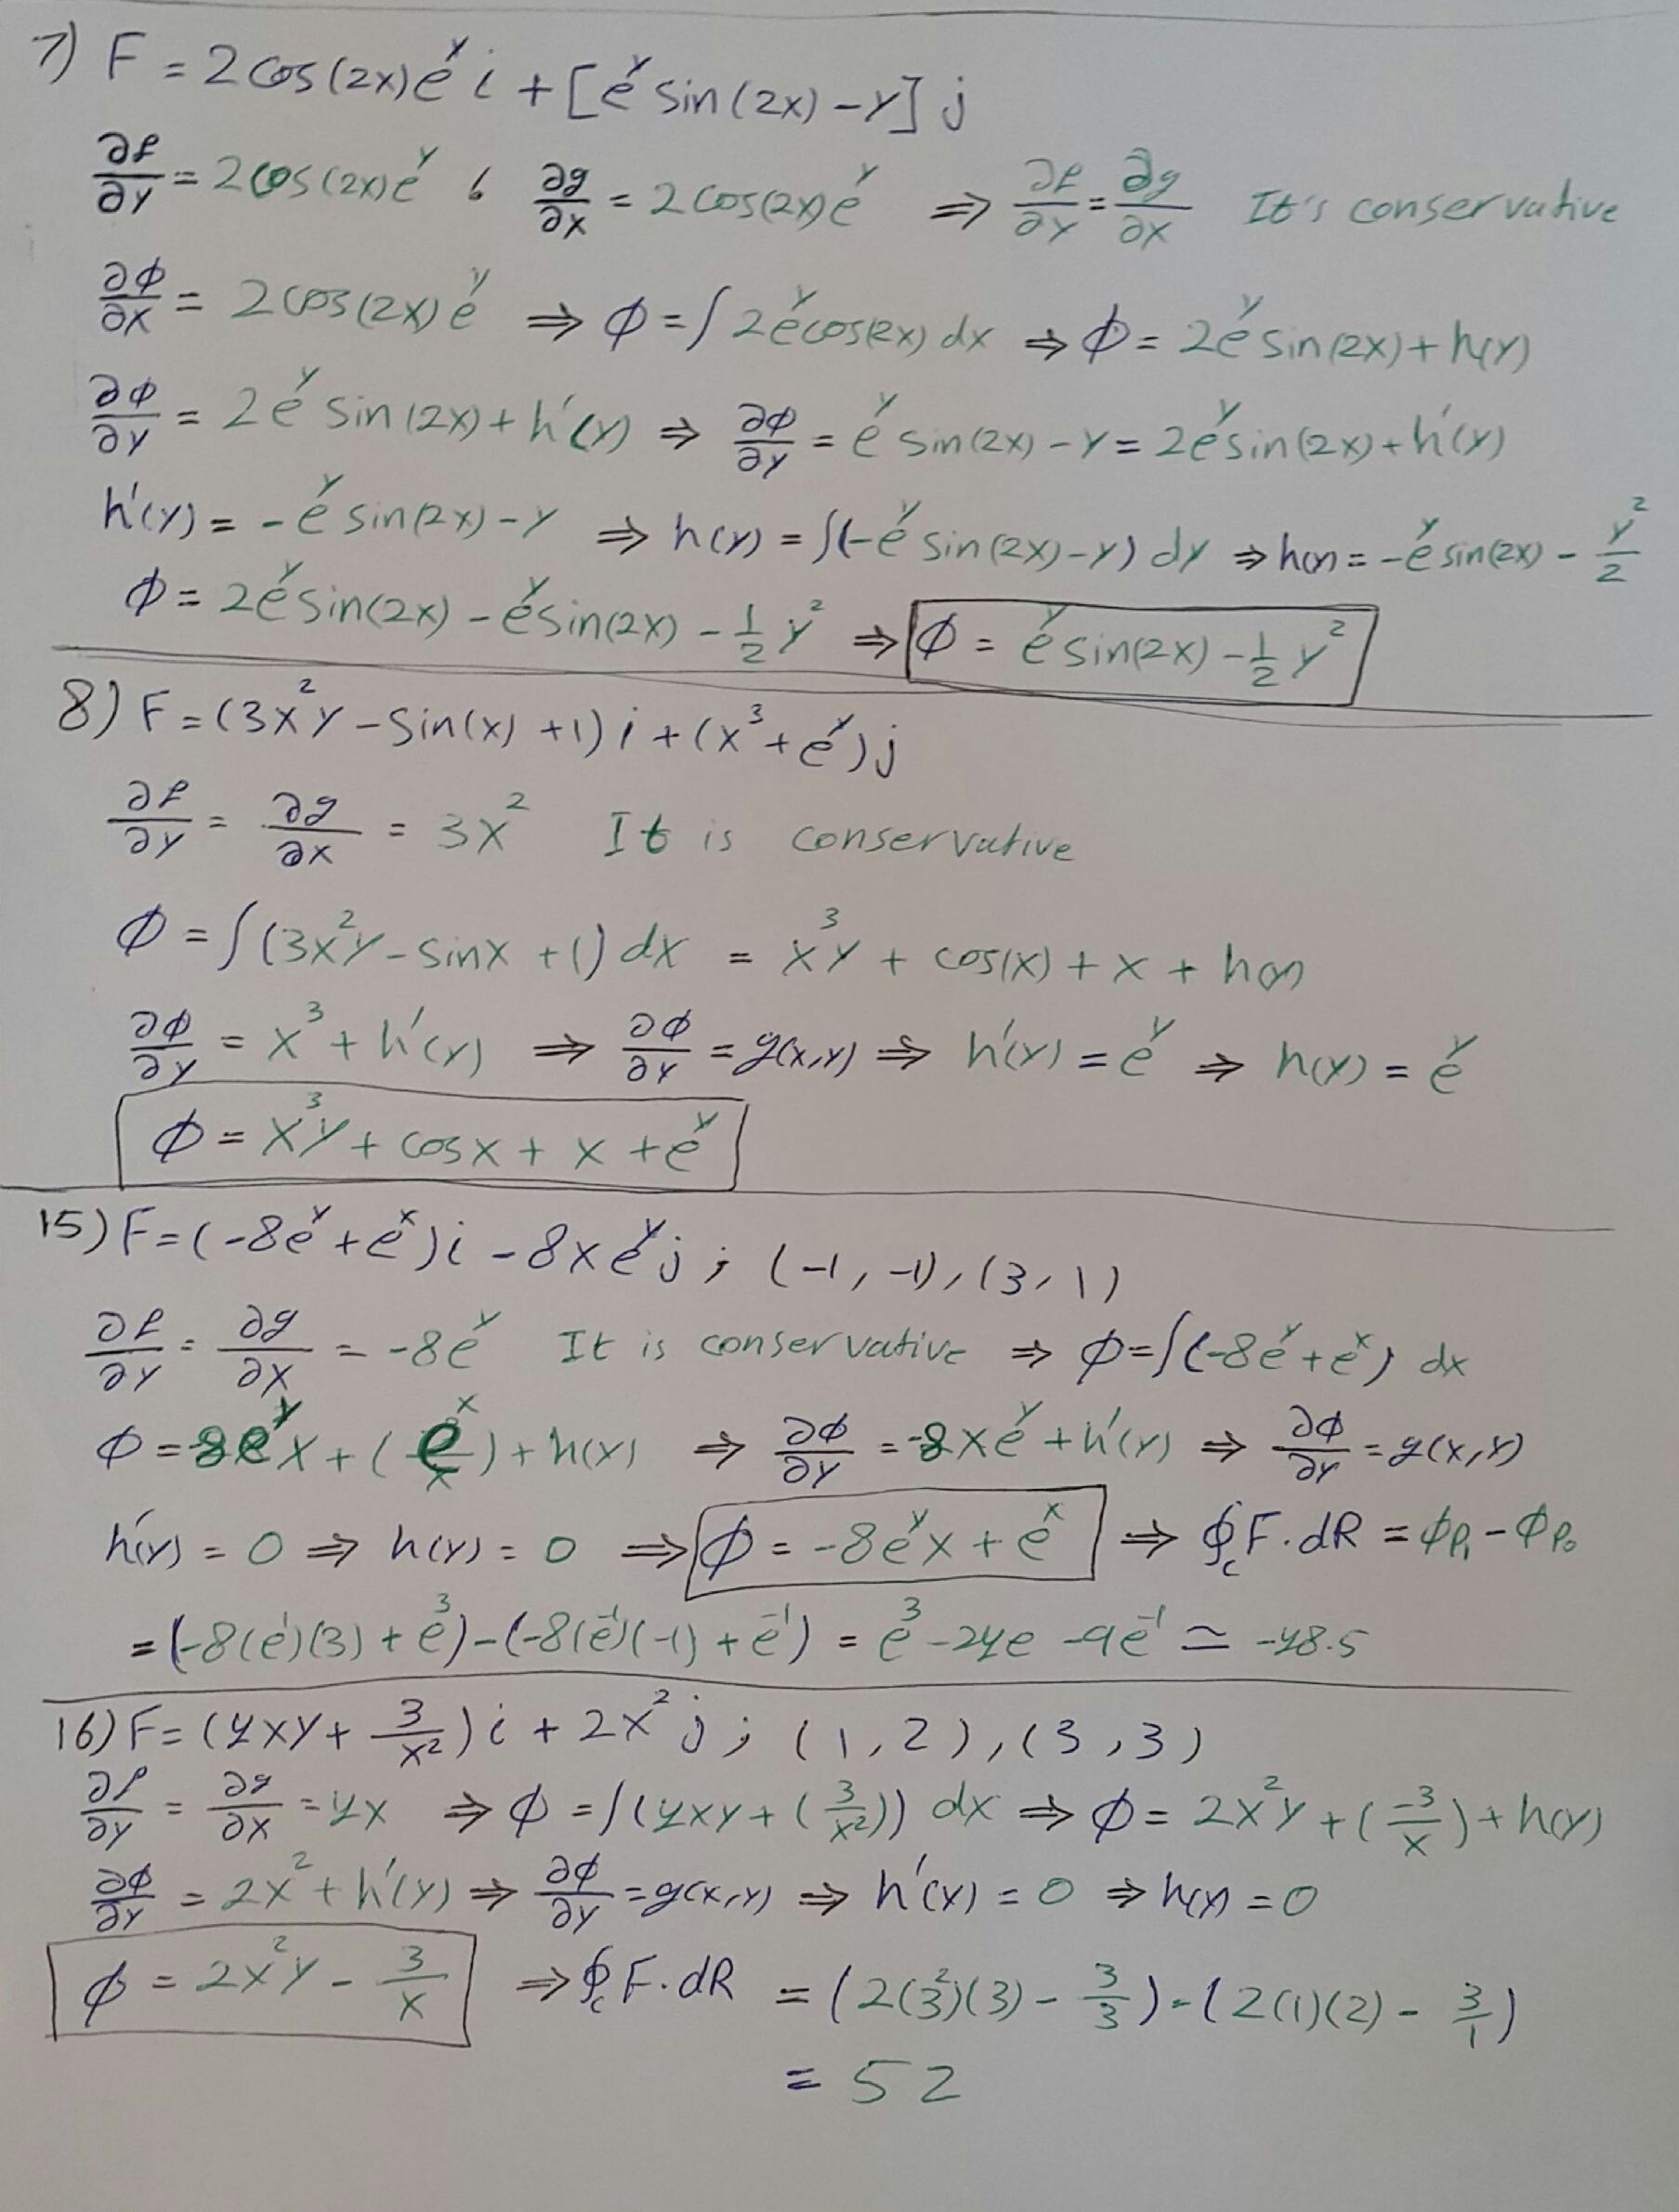 7) F = 2cos(2x)e^y i + [e^y sin(2x) - y] j
∂f/∂y = 2cos(2x)e^y , ∂g/∂x = 2cos(2x)e^y ⇒ ∂f/∂y = ∂g/∂x It's conservative
∂ϕ/∂x = 2cos(2x)e^y ⇒ ϕ = ∫2e^y cos(2x) dx ⇒ ϕ = 2e^y sin(2x) + h(y)
∂ϕ/∂y = 2e^y sin(2x) + h'(y) ⇒ ∂ϕ/∂y = e^y sin(2x) - y = 2e^y sin(2x) + h'(y)
h'(y) = -e^y sin(2x) - y ⇒ h(y) = ∫(-e^y sin(2x) - y) dy ⇒ h(y) = -e^y sin(2x) - y^2/2
ϕ = 2e^y sin(2x) - e^y sin(2x) - 1/2 y^2 ⇒ ϕ = e^y sin(2x) - 1/2 y^2
8) F = (3x^2y - sin(x) + 1) i + (x^3 + e^y) j
∂f/∂y = ∂g/∂x = 3x^2 It is conservative
ϕ = ∫(3x^2y - sinx + 1) dx = x^3y + cos(x) + x + h(y)
∂ϕ/∂y = x^3 + h'(y) ⇒ ∂ϕ/∂y = g(x,y) ⇒ h'(y) = e^y ⇒ h(y) = e^y
ϕ = x^3y + cosx + x + e^y
15) F = (-8e^y + e^x) i - 8xe^y j ; (-1, -1), (3, 1)
∂f/∂y = ∂g/∂x = -8e^y It is conservative ⇒ ϕ = ∫(-8e^y + e^x) dx
ϕ = -8e^y x + (e^x) + h(y) ⇒ ∂ϕ/∂y = -8xe^y + h'(y) ⇒ ∂ϕ/∂y = g(x,y)
h'(y) = 0 ⇒ h(y) = 0 ⇒ ϕ = -8e^y x + e^x ⇒ ∮_c F.dR = ϕP₁ - ϕP₀
= (-8(e^1)(3) + e^3) - (-8(e^-1)(-1) + e^-1) = e^3 - 24e - 9e^-1 ≃ -48.5
16) F = (4xy + 3/x^2) i + 2x^2 j ; (1, 2), (3, 3)
∂f/∂y = ∂g/∂x = 4x ⇒ ϕ = ∫(4xy + (3/x^2)) dx ⇒ ϕ = 2x^2y + (-3/x) + h(y)
∂ϕ/∂y = 2x^2 + h'(y) ⇒ ∂ϕ/∂y = g(x,y) ⇒ h'(y) = 0 ⇒ h(y) = 0
ϕ = 2x^2y - 3/x ⇒ ∮_c F.dR = (2(3^2)(3) - 3/3) - (2(1)(2) - 3/1)
= 52